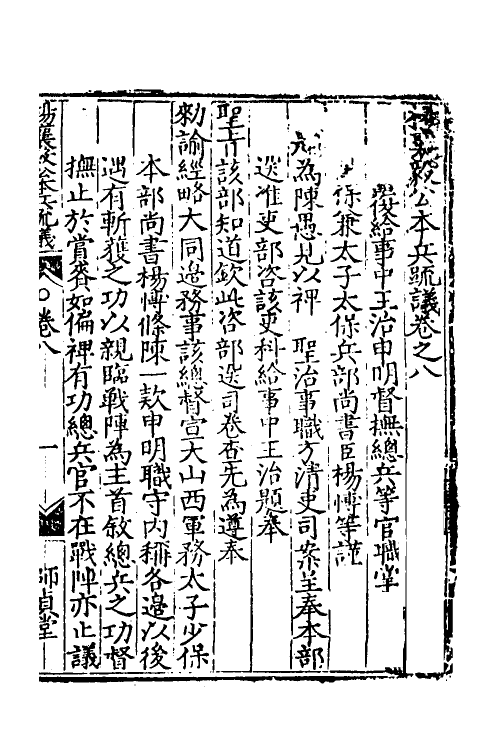 公本兵疏議卷之八
覆給事中王治申明督撫總兵等官職掌
保兼太子太保兵部尚書臣楊博等謹
為陳愚見以裨 聖治事職方清吏司案呈奉本部
送准吏部咨該吏科給事中王治題奉
聖旨該部知道欽此咨部送司卷查先為遵奉
勑諭經略大同邊務事該總督宣大山西軍務太子少保
本部尚書楊博條陳一款申明職守內稱各邊以後
遇有斬獲之功以親臨戰陣為主首敘總兵之功督
撫止於賞賚如偏裨有功總兵官不在戰陣亦止議
楊襄毅公本兵疏議 卷八 一 師貞堂